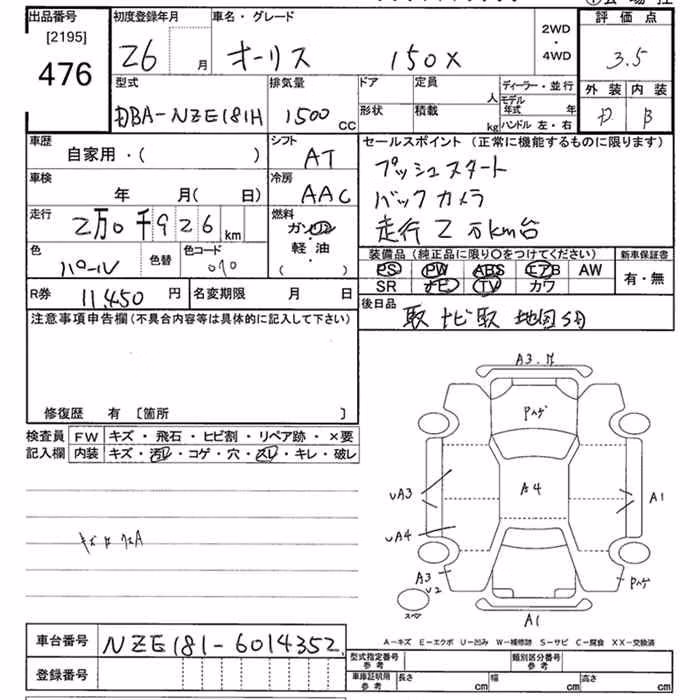 出品番号 [2195] 476
初度登録年月 26 月
車名・グレード オーリス 150X
2WD・4WD
評価点 3.5
外装 内装 B
型式 DBA-NZE181H
排気量 1500 CC
ドア 形状
定員 人 積載 kg
ディーラー・並行
モデル年式 年
ハンドル 左・右
車歴 自家用・( )
シフト AT
車検 年 月( 日)
冷房 AAC
走行 2万0千926 km
燃料 ガソリン・軽油 ( )
色 パール 色替 色コード 070
R券 11,450 円 名変期限 月 日
セールスポイント(正常に機能するものに限ります)
プッシュスタート
バックカメラ
走行2万km台
装備品(純正品に限り○をつけてください) 新車保証書
PS PW ABS エアB AW 有・無
SR ナビ TV カワ
後日品 取 ナビ取 地図SD
注意事項申告欄(不具合内容等は具体的に記入して下さい)
修復歴 有 [箇所 ]
検査員 FW キズ・飛石・ヒビ割・リペア跡・×要
記入欄 内装 キズ・汚レ・コゲ・穴・スレ・キレ・破レ
A3.
Pハゲ
A4
UA3
A1
UA4
A3
U2
Pハゲ
スペア
A1
A-キズ E-エクボ U-凹み W-補修跡 S-サビ C-腐食 XX-交換済
車台番号 NZE181-6014352
登録番号
型式指定番号 参考 類別区分番号 参考
車庫証明用 参考 長さ cm 幅 cm 高さ cm